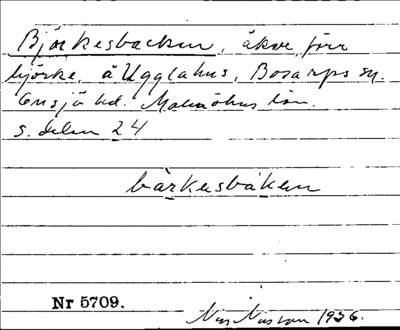 Björkesbacken, åker, förr
björke, å Ugglahus, Bosarps sn.
Onsjö hd. Malmöhus län.
s. delen 24
bärkesbáken
Nr 5709.
Nils Nilsson 1936.